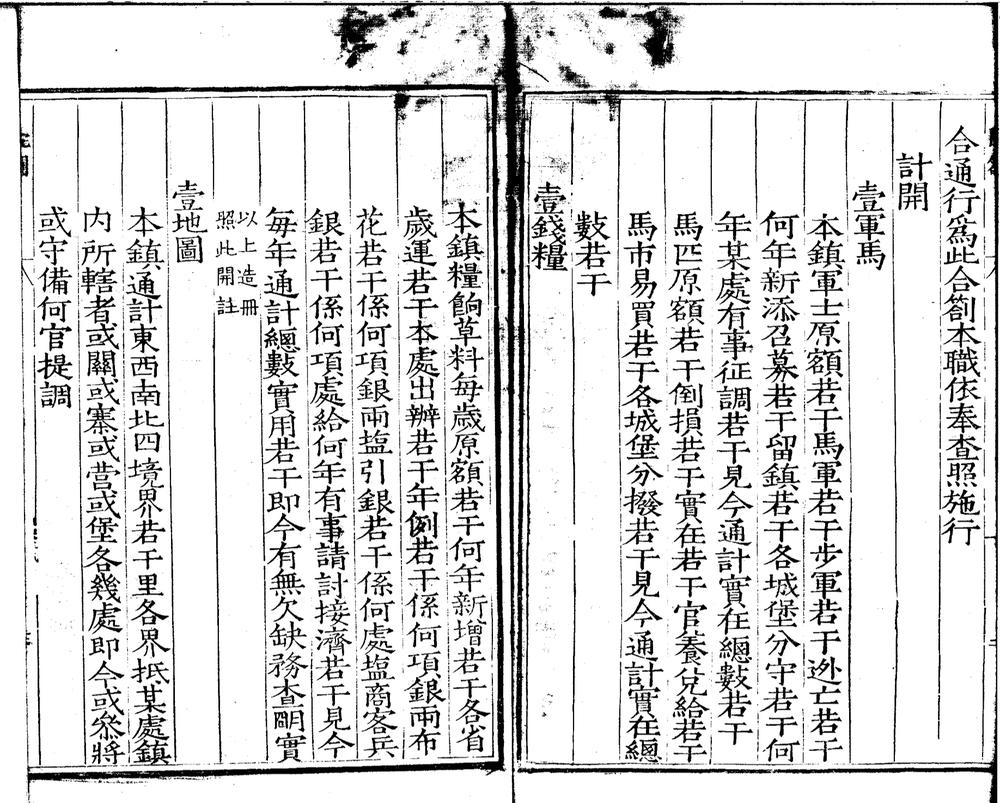 合通行爲此合劄本職依奉查照施行
計開
壹軍馬
本鎮軍士原額若干馬軍若干步軍若干迯亡若干
何年新添召募若干留鎮若干各城堡分守若干何
年某處有事征調若干見今通計實在總數若干
馬匹原額若干倒損若干實在若干官養兌給若干
馬市易買若干各城堡分撥若干見今通計實在總
數若干
壹錢糧
本鎮糧餉草料每歲原額若干何年新增若干各省
歲運若干本處出辦若干年例若干係何項銀兩布
花若干係何項銀兩塩引銀若干係何處塩商客兵
銀若干係何項處給何年有事請討接濟若干見今
每年通計總數實用若干即今有無欠缺務查明實
以上造冊
照此開註
壹地圖
本鎮通計東西南北四境界若干里各界抵某處鎮
内所轄者或關或寨或营或堡各幾處即今或叅將
或守備何官提調